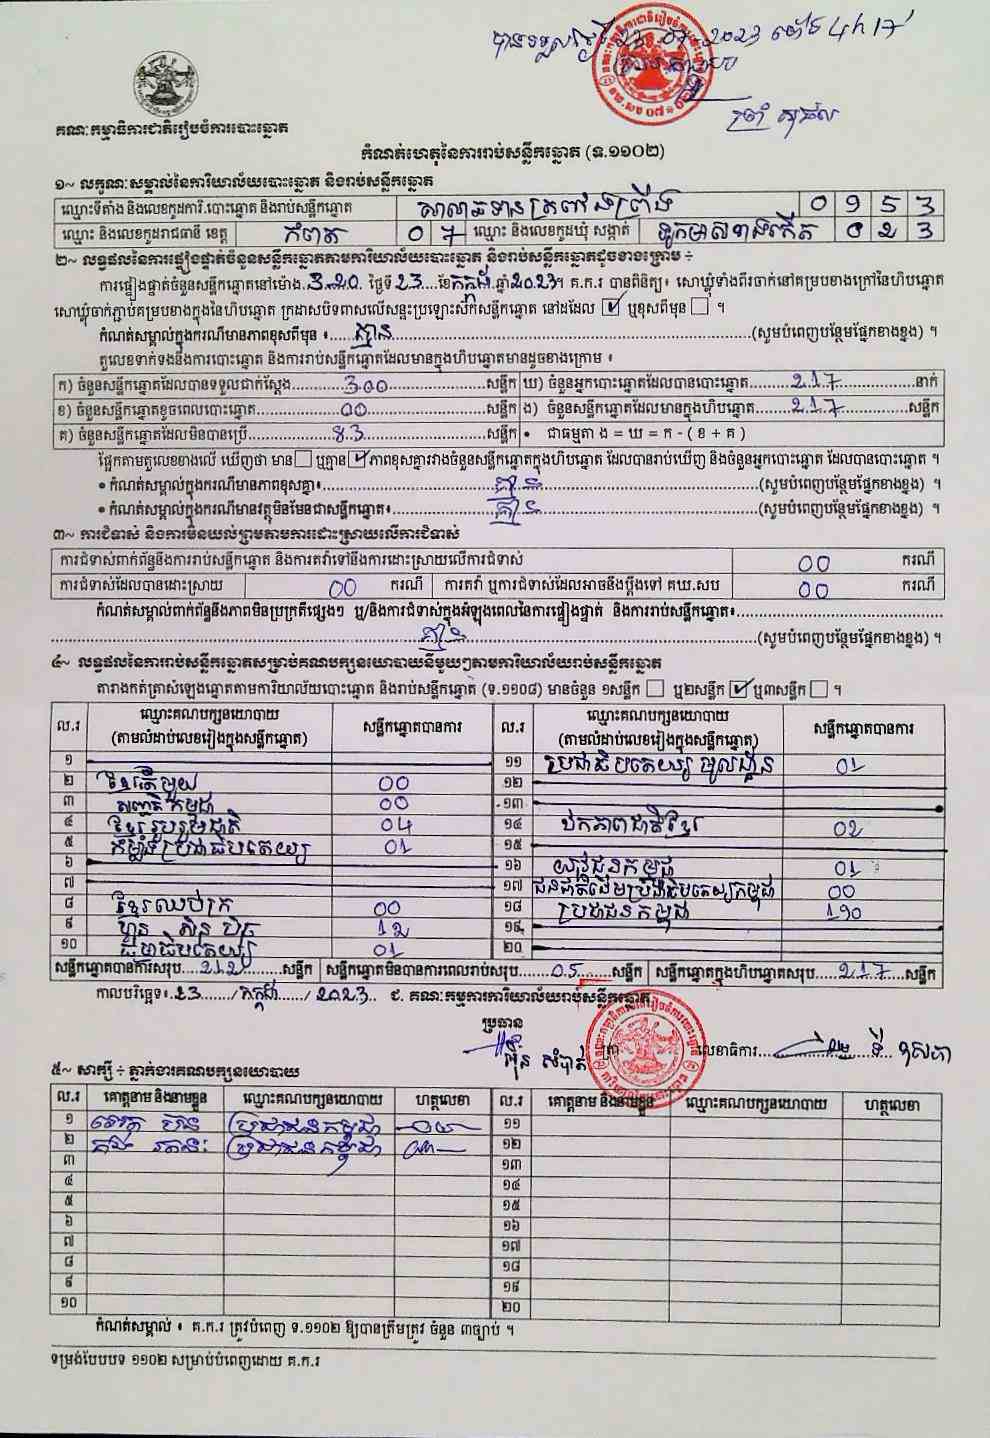 បានទទួលថ្ងៃទី 23.07.2023 ម៉ោង 4h17
គណៈកម្មាធិការជាតិរៀបចំការបោះឆ្នោត
កំណត់ហេតុនៃការរាប់សន្លឹកឆ្នោត (ទ.១១០២)
១~ លក្ខណៈសម្គាល់នៃការិយាល័យបោះឆ្នោត និងរាប់សន្លឹកឆ្នោត
ឈ្មោះទីតាំង និងលេខកូដការិ.បោះឆ្នោត និងរាប់សន្លឹកឆ្នោត សាលាឆទាន ត្រពាំងព្រីង 0 9 5 3
ឈ្មោះ និងលេខកូដរាជធានី ខេត្ត កំពត 0 7 ឈ្មោះ និងលេខកូដឃុំ សង្កាត់ ទូកមាសខាងកើត 0 2 3
២~ លទ្ធផលនៃការផ្ទៀងផ្ទាត់ចំនួនសន្លឹកឆ្នោតតាមការិយាល័យបោះឆ្នោត និងរាប់សន្លឹកឆ្នោតដូចខាងក្រោម ÷
ការផ្ទៀងផ្ទាត់ចំនួនសន្លឹកឆ្នោតនៅម៉ោង 3:20 ថ្ងៃទី 23 ខែ កក្កដា ឆ្នាំ 2023។ គ.ក.រ បានពិនិត្យ៖ សោឃ្លុំទាំងពីរចាក់នៅគម្របខាងក្រៅនៃហិបឆ្នោត
សោឃ្លុំចាក់ភ្ជាប់គម្របខាងក្នុងនៃហិបឆ្នោត ក្រដាសបិទពាសលើសន្ទះប្រឡោះស៊កសន្លឹកឆ្នោត នៅដដែល ☑ ឬខុសពីមុន ☐ ។
កំណត់សម្គាល់ក្នុងករណីមានភាពខុសពីមុន ៖ គ្មាន (សូមបំពេញបន្ថែមផ្នែកខាងខ្នង) ។
តួលេខទាក់ទងនឹងការបោះឆ្នោត និងការរាប់សន្លឹកឆ្នោតដែលមានក្នុងហិបឆ្នោតមានដូចខាងក្រោម ៖
ក) ចំនួនសន្លឹកឆ្នោតដែលបានទទួលជាក់ស្តែង 300 សន្លឹក ឃ) ចំនួនអ្នកបោះឆ្នោតដែលបានបោះឆ្នោត 217 នាក់
ខ) ចំនួនសន្លឹកឆ្នោតខូចពេលបោះឆ្នោត 00 សន្លឹក ង) ចំនួនសន្លឹកឆ្នោតដែលមានក្នុងហិបឆ្នោត 217 សន្លឹក
គ) ចំនួនសន្លឹកឆ្នោតដែលមិនបានប្រើ 83 សន្លឹក • ជាធម្មតា ង = ឃ = ក - ( ខ + គ )
ផ្អែកតាមតួលេខខាងលើ ឃើញថា មាន ☐ ឬគ្មាន ☑ ភាពខុសគ្នារវាងចំនួនសន្លឹកឆ្នោតក្នុងហិបឆ្នោត ដែលបានរាប់ឃើញ និងចំនួនអ្នកបោះឆ្នោត ដែលបានបោះឆ្នោត ។
• កំណត់សម្គាល់ក្នុងករណីមានភាពខុសគ្នា៖ គ្មាន (សូមបំពេញបន្ថែមផ្នែកខាងខ្នង) ។
• កំណត់សម្គាល់ក្នុងករណីមានវត្ថុមិនមែនជាសន្លឹកឆ្នោត៖ គ្មាន (សូមបំពេញបន្ថែមផ្នែកខាងខ្នង) ។
៣~ ការជំទាស់ និងការមិនយល់ព្រមតាមការដោះស្រាយលើការជំទាស់
ការជំទាស់ពាក់ព័ន្ធនឹងការរាប់សន្លឹកឆ្នោត និងការតវ៉ាទៅនឹងការដោះស្រាយលើការជំទាស់ 00 ករណី
ការជំទាស់ដែលបានដោះស្រាយ 00 ករណី ការតវ៉ា ឬការជំទាស់ដែលអាចនឹងប្តឹងទៅ គឃ.សប 00 ករណី
កំណត់សម្គាល់ពាក់ព័ន្ធនឹងភាពមិនប្រក្រតីផ្សេងៗ ឬ/និងការជំទាស់ក្នុងអំឡុងពេលនៃការផ្ទៀងផ្ទាត់ និងការរាប់សន្លឹកឆ្នោត៖
គ្មាន (សូមបំពេញបន្ថែមផ្នែកខាងខ្នង) ។
៤~ លទ្ធផលនៃការរាប់សន្លឹកឆ្នោតសម្រាប់គណបក្សនយោបាយនីមួយៗតាមការិយាល័យរាប់សន្លឹកឆ្នោត
តារាងកត់ត្រាសំឡេងឆ្នោតតាមការិយាល័យបោះឆ្នោត និងរាប់សន្លឹកឆ្នោត (ទ.១១០៨) មានចំនួន ១សន្លឹក ☐ ឬ២សន្លឹក ☑ ឬ៣សន្លឹក ☐ ។
ល.រ ឈ្មោះគណបក្សនយោបាយ សន្លឹកឆ្នោតបានការ ល.រ ឈ្មោះគណបក្សនយោបាយ សន្លឹកឆ្នោតបានការ
(តាមលំដាប់លេខរៀងក្នុងសន្លឹកឆ្នោត) (តាមលំដាប់លេខរៀងក្នុងសន្លឹកឆ្នោត)
១ ១១ ប្រជាធិបតេយ្យ មូលដ្ឋាន 01
២ ខ្មែរតែមួយ 00 ១២
៣ សញ្ជាតិ កម្ពុជា 00 ១៣
៤ ខ្មែររួបរួមជាតិ 04 ១៤ ឯកភាពជាតិខ្មែរ 02
៥ កម្លាំងប្រជាធិបតេយ្យ 01 ១៥
៦ ១៦ យុវជនកម្ពុជា 01
៧ ១៧ ជនជាតិដើមប្រជាធិបតេយ្យកម្ពុជា 00
៨ ខ្មែរឈប់ក្រ 00 ១៨ ប្រជាជនកម្ពុជា 190
៩ ហ្វ៊ុន ស៊ិន ប៉ិច 12 ១៩
១០ ធម្មាធិបតេយ្យ 01 ២០
សន្លឹកឆ្នោតបានការសរុប 212 សន្លឹក សន្លឹកឆ្នោតមិនបានការពេលរាប់សរុប 05 សន្លឹក សន្លឹកឆ្នោតក្នុងហិបឆ្នោតសរុប 217 សន្លឹក
កាលបរិច្ឆេទ៖ 23 / កក្កដា / 2023 ជ. គណៈកម្មការការិយាល័យរាប់សន្លឹកឆ្នោត
ប្រធាន
លេខាធិការ
៥~ សាក្សី ÷ ភ្នាក់ងារគណបក្សនយោបាយ
ល.រ គោត្តនាម និងនាមខ្លួន ឈ្មោះគណបក្សនយោបាយ ហត្ថលេខា ល.រ គោត្តនាម និងនាមខ្លួន ឈ្មោះគណបក្សនយោបាយ ហត្ថលេខា
១ ប្រជាជនកម្ពុជា ១១
២ ប្រជាជនកម្ពុជា ១២
៣ ១៣
៤ ១៤
៥ ១៥
៦ ១៦
៧ ១៧
៨ ១៨
៩ ១៩
១០ ២០
កំណត់សម្គាល់ ៖ គ.ក.រ ត្រូវបំពេញ ទ.១១០២ ឱ្យបានត្រឹមត្រូវ ចំនួន ៣ច្បាប់ ។
ទម្រង់បែបបទ ១១០២ សម្រាប់បំពេញដោយ គ.ក.រ